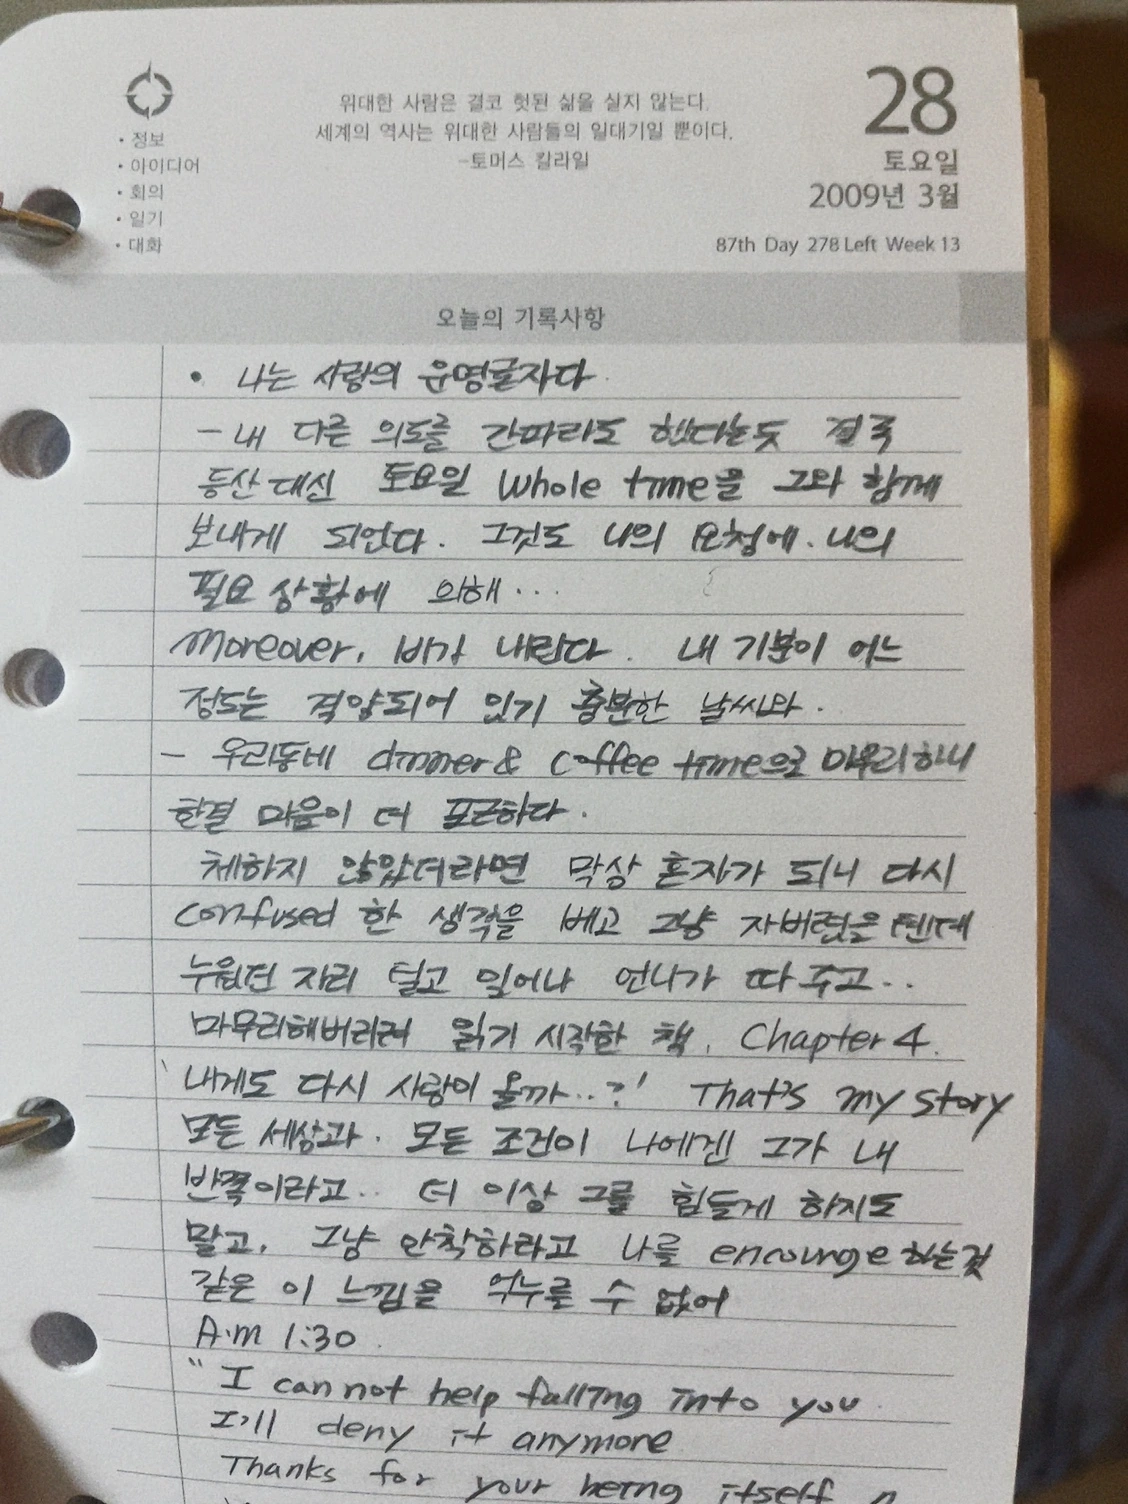 위대한 사람은 결코 헛된 삶을 살지 않는다.
세계의 역사는 위대한 사람들의 일대기일 뿐이다.
-토머스 칼라일
• 정보
• 아이디어
• 회의
• 일기
• 대화
28
토요일
2009년 3월
87th Day 278 Left Week 13
오늘의 기록사항
• 나는 사랑의 운명론자다.
- 내 다른 의도를 간파라도 했다는듯 결국
등산 대신 토요일 whole time을 그와 함께
보내게 되었다. 그것도 나의 요청에. 나의
필요 상황에 의해...
Moreover, 비가 내렸다. 내 기분이 어느
정도는 격양되어 있기 충분한 날씨와.
- 우리동네 dinner & coffee time으로 마무리하니
한결 마음이 더 포근하다.
체하지 않았더라면 막상 혼자가 되니 다시
confused 한 생각을 베고 그냥 자버렸을텐데
누웠던 자리 털고 일어나 언니가 따 주고..
마무리해버리려 읽기 시작한 책. Chapter 4.
'내게도 다시 사랑이 올까..?' That's my story
모든 세상과. 모든 조건이 나에겐 그가 내
반쪽이라고.. 더 이상 그를 힘들게 하지도
말고, 그냥 안착하라고 나를 encourge 하는것
같은 이 느낌을 억누를 수 없어
A.m 1:30.
" I can not help falling into you.
I'll deny it anymore
Thanks for your being itself